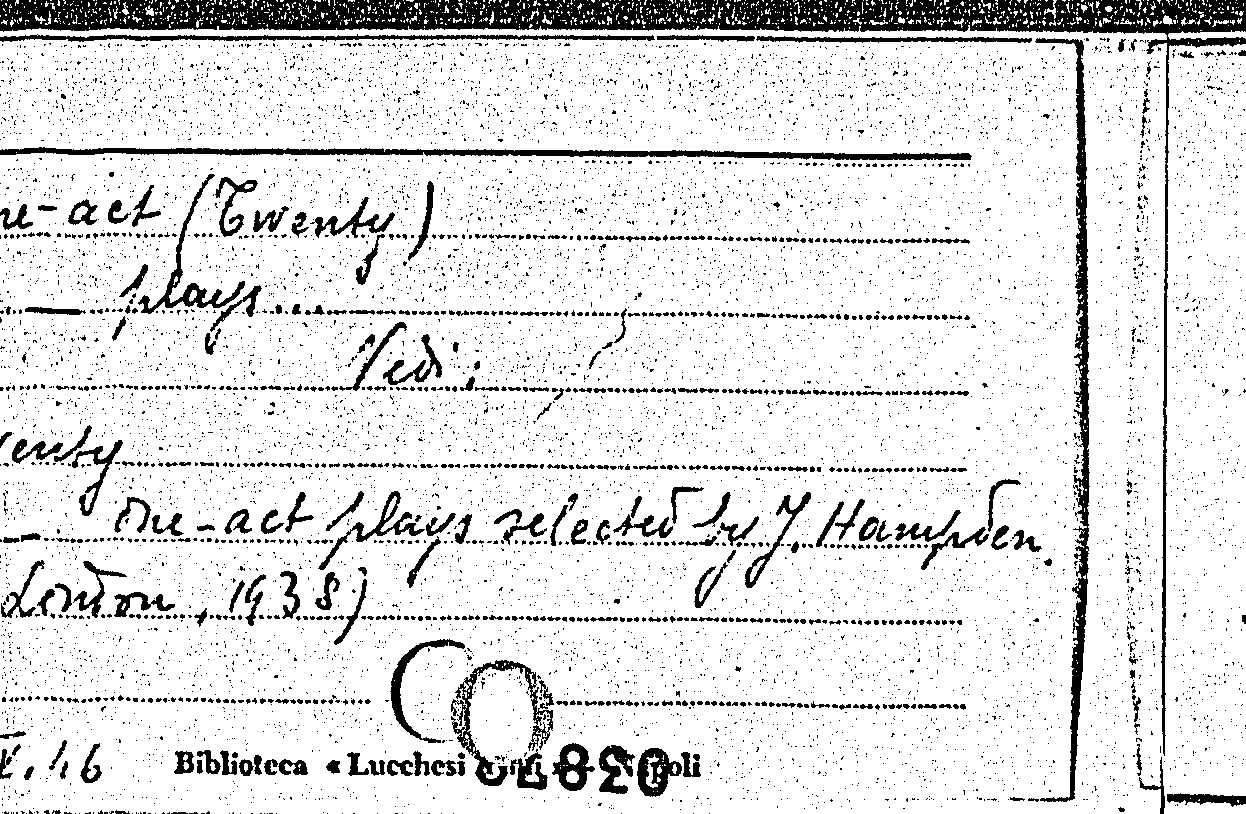 ne-act (Twenty)
— plays...
Vedi:
wenty
— One-act plays selected by J. Hampden.
London, 1938)
CO
.46 Biblioteca « Lucchesi » - Napoli